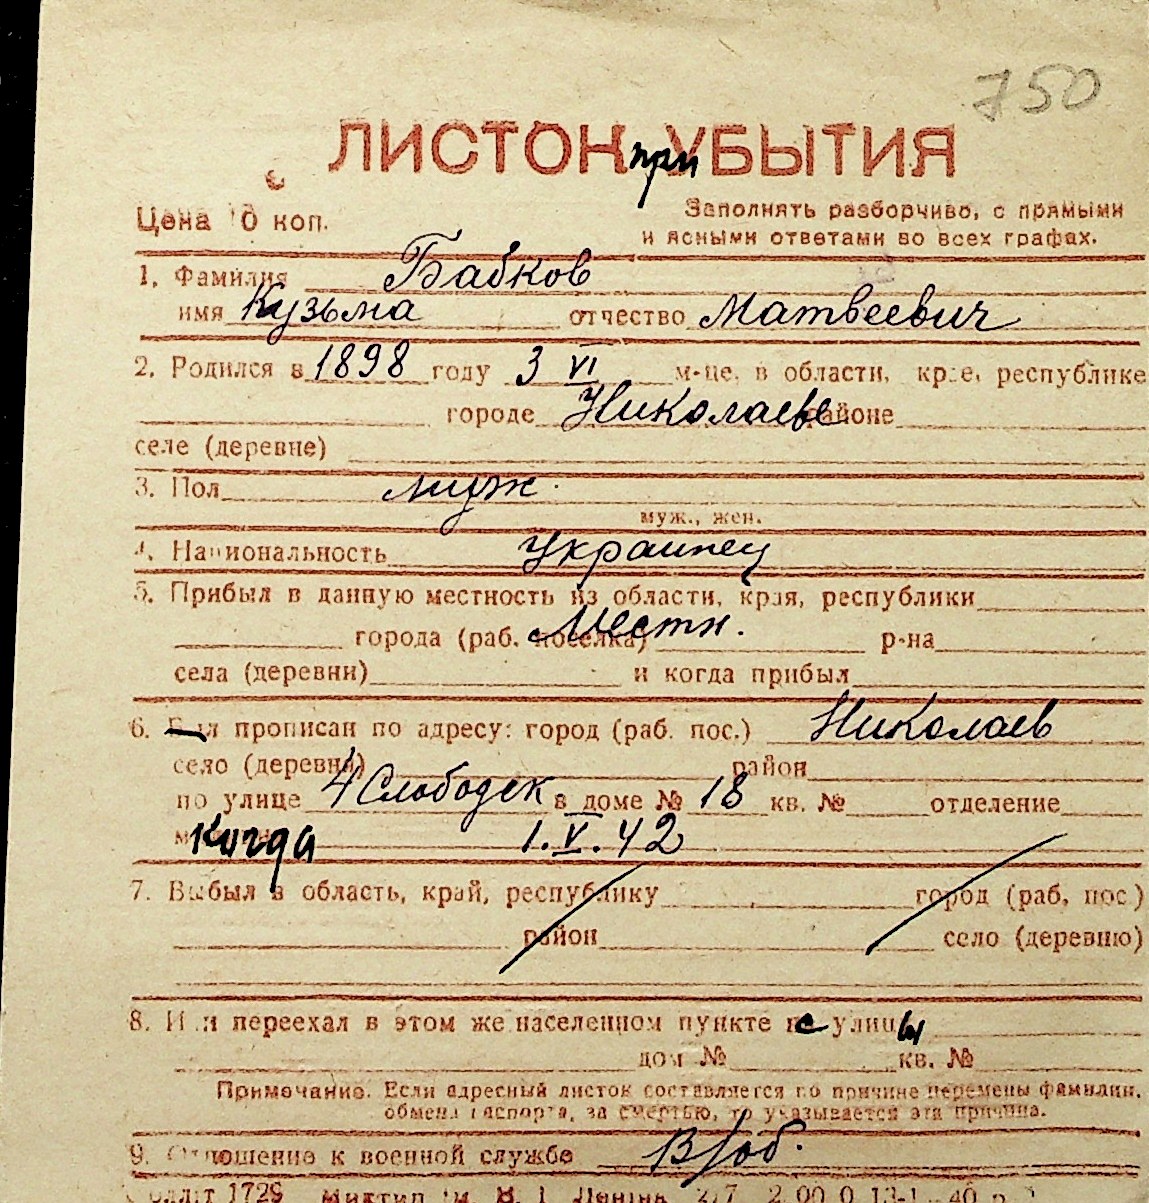 750
ЛИСТОК при УБЫТИЯ
Цена 10 коп.
Заполнять разборчиво, с прямыми
и ясными ответами во всех графах.
1. Фамилия Бабков
имя Кузьма отчество Матвеевич
2. Родился в 1898 году 3 VI м-це, в области, крае, республике
городе Николаеве районе
селе (деревне)
3. Пол муж.
муж., жен.
4. Национальность Украинец
5. Прибыл в данную местность из области, края, республики
города (раб. поселка) Местн. р-на
села (деревни) и когда прибыл
6. Был прописан по адресу: город (раб. пос.) Николаев
село (деревня) район
по улице 4 Слободск в доме № 18 кв. № отделение
Когда 1.V.42
7. Выбыл в область, край, республику город (раб. пос.)
район село (деревню)
8. Или переехал в этом же населенном пункте с улицы
дом № кв. №
Примечание. Если адресный листок составляется по причине перемены фамилии,
обмена паспорта, за смертью, то указывается эта причина.
9. Отношение к военной службе В/об.
1729 им. В. И. Ленина